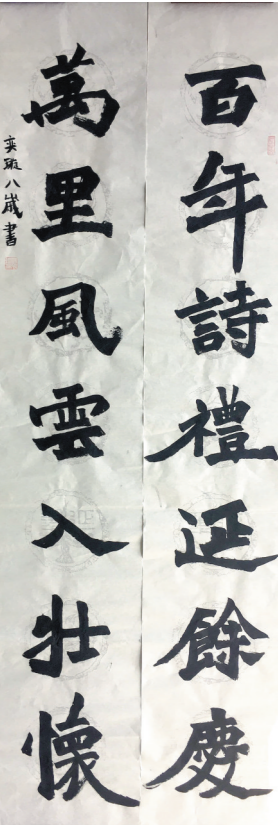 百年詩禮延餘慶
萬里風雲入壯懷
奕璇八歲書